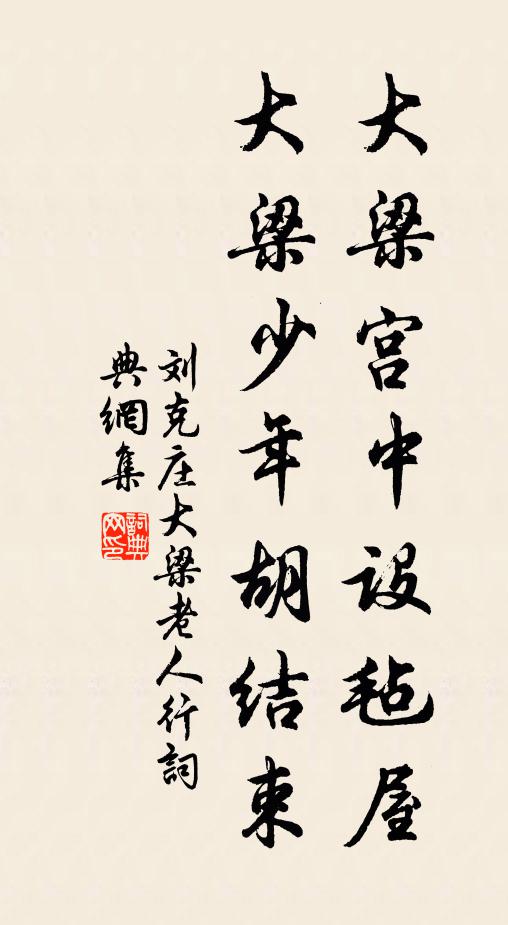 大梁宫中設毡屋
大梁少年胡结束
刘克庄大梁老人行詞
典網集
詞典
网印